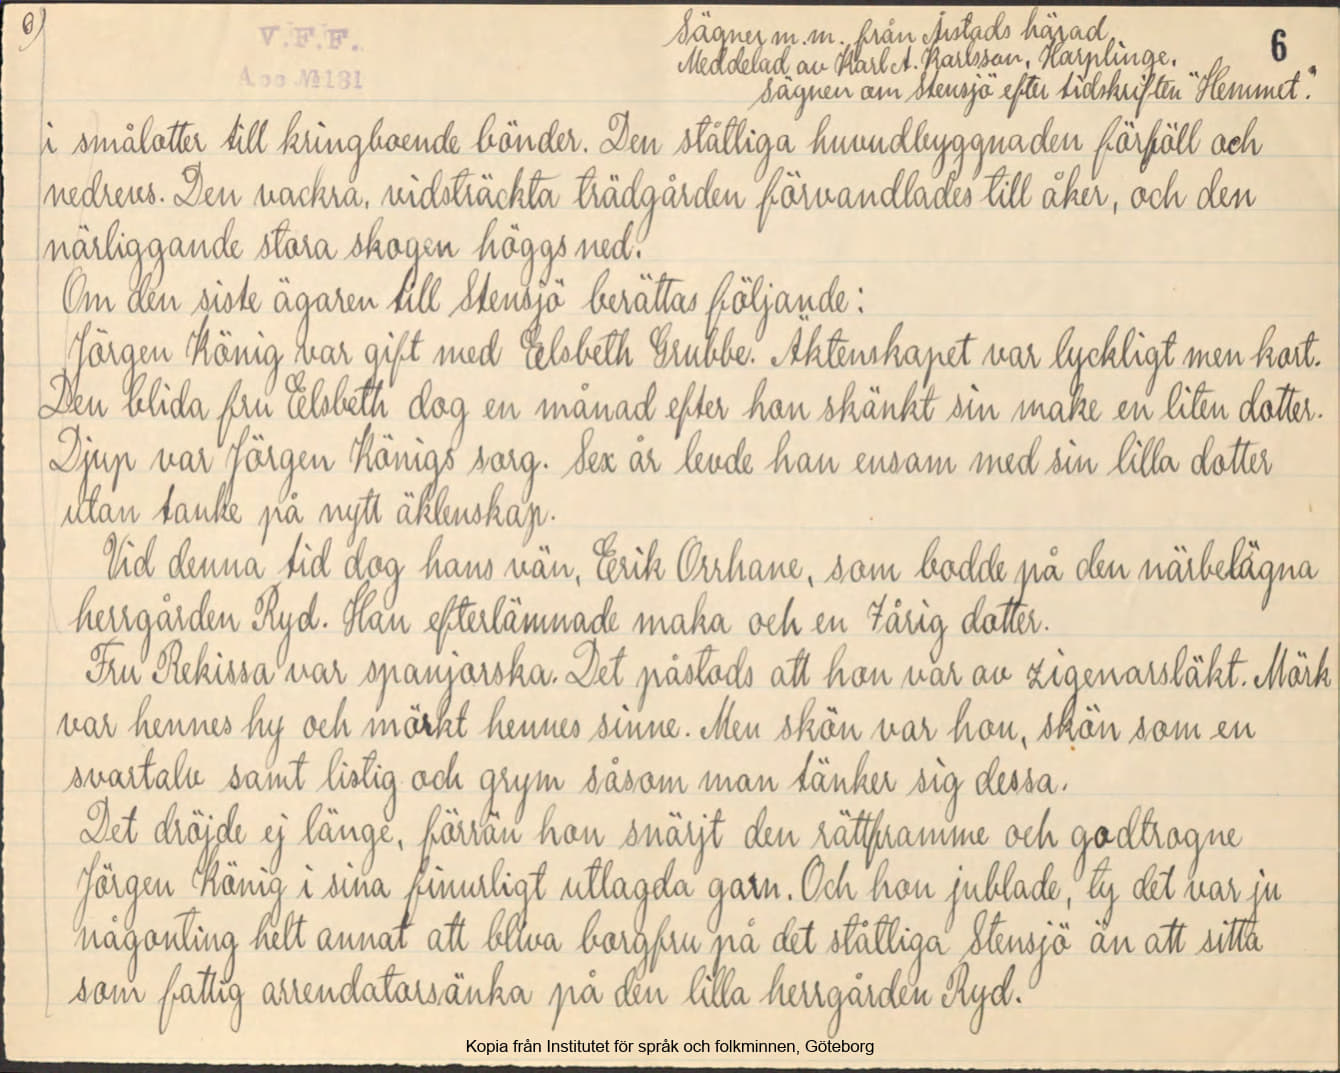 6)
V.F.F.
Acc № 131
Sägner m.m. från Årstads härad
Meddelad av Karl A. Karlsson, Harplinge.
Sägnen om Stensjö efter tidskriften "Hemmet".
6
i smålotter till kringboende bönder. Den ståtliga huvudbyggnaden förföll och
nedrevs. Den vackra, vidsträckta trädgården förvandlades till åker, och den
närliggande stora skogen höggs ned.
Om den siste ägaren till Stensjö berättas följande:
Jörgen König var gift med Eelsbeth Grubbe. Äktenskapet var lyckligt men kort.
Den blida fru Eelsbeth dog en månad efter hon skänkt sin make en liten dotter.
Djup var Jörgen Königs sorg. Sex år levde han ensam med sin lilla dotter
utan tanke på nytt äktenskap.
Vid denna tid dog hans vän, Eerik Orrhane, som bodde på den närbelägna
herrgården Ryd. Han efterlämnade maka och en 7årig dotter.
Fru Rekissa var spanjorska. Det påstods att hon var av zigenarsläkt. Mörk
var hennes hy och mörkt hennes sinne. Men skön var hon, skön som en
svartalv samt listig och grym såsom man tänker sig dessa.
Det dröjde ej länge, förrän hon snärjt den rättframme och godtrogne
Jörgen König i sina finurligt utlagda garn. Och hon jublade, ty det var ju
någonting helt annat att bliva borgfru på det ståtliga Stensjö än att sitta
som fattig arrendatorsänka på den lilla herrgården Ryd.
Kopia från Institutet för språk och folkminnen, Göteborg